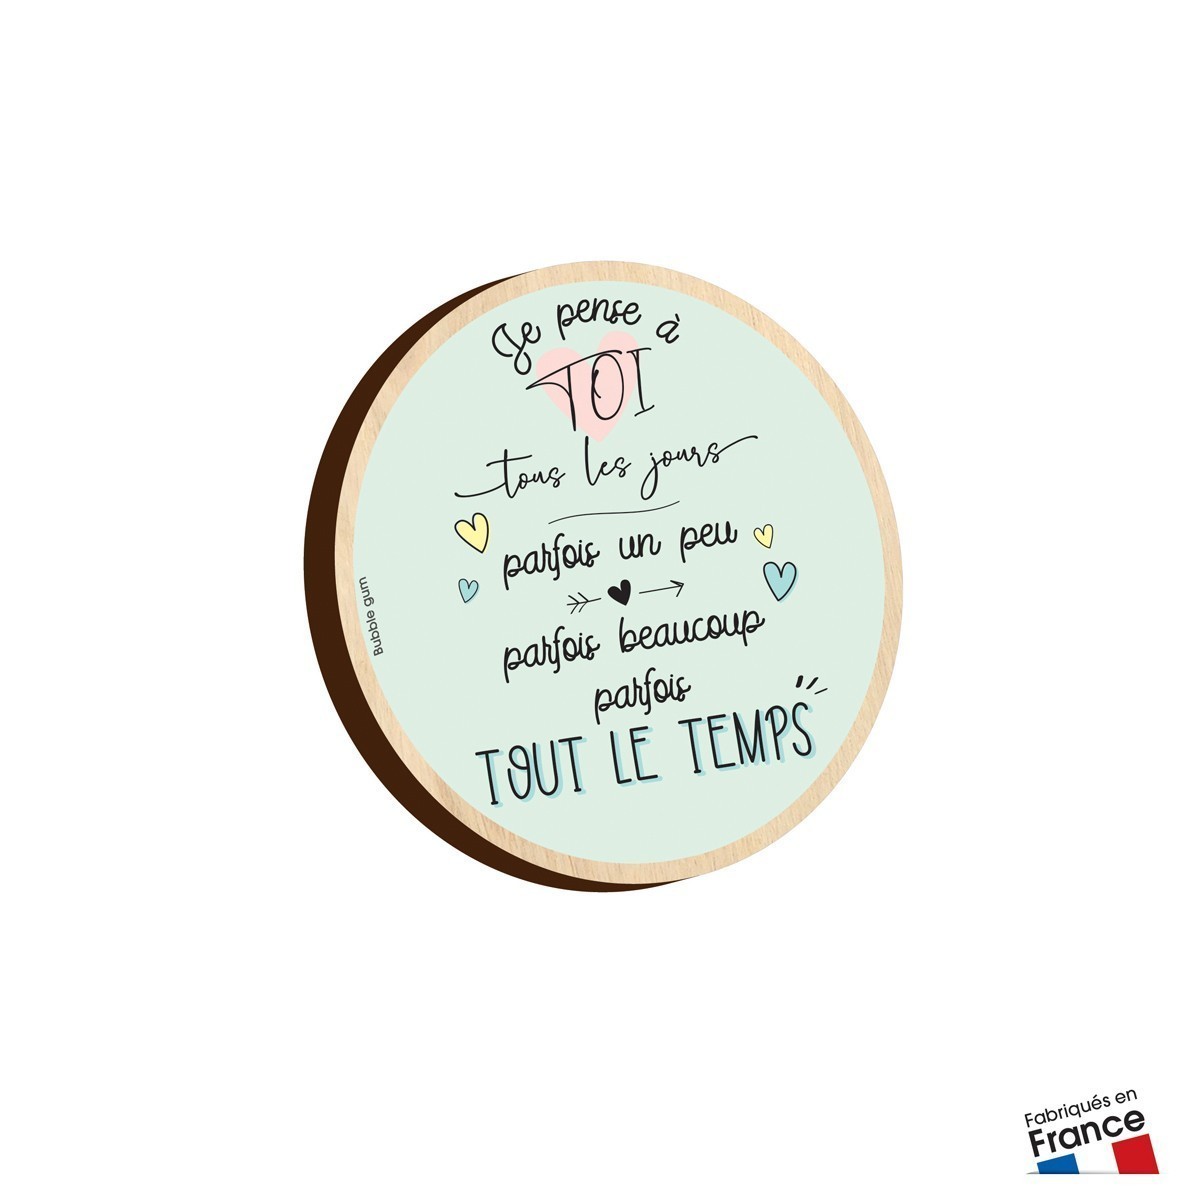 Je pense à
TOI
tous les jours
parfois un peu
parfois beaucoup
parfois
TOUT LE TEMPS
Bubble gum
Fabriqués en
France